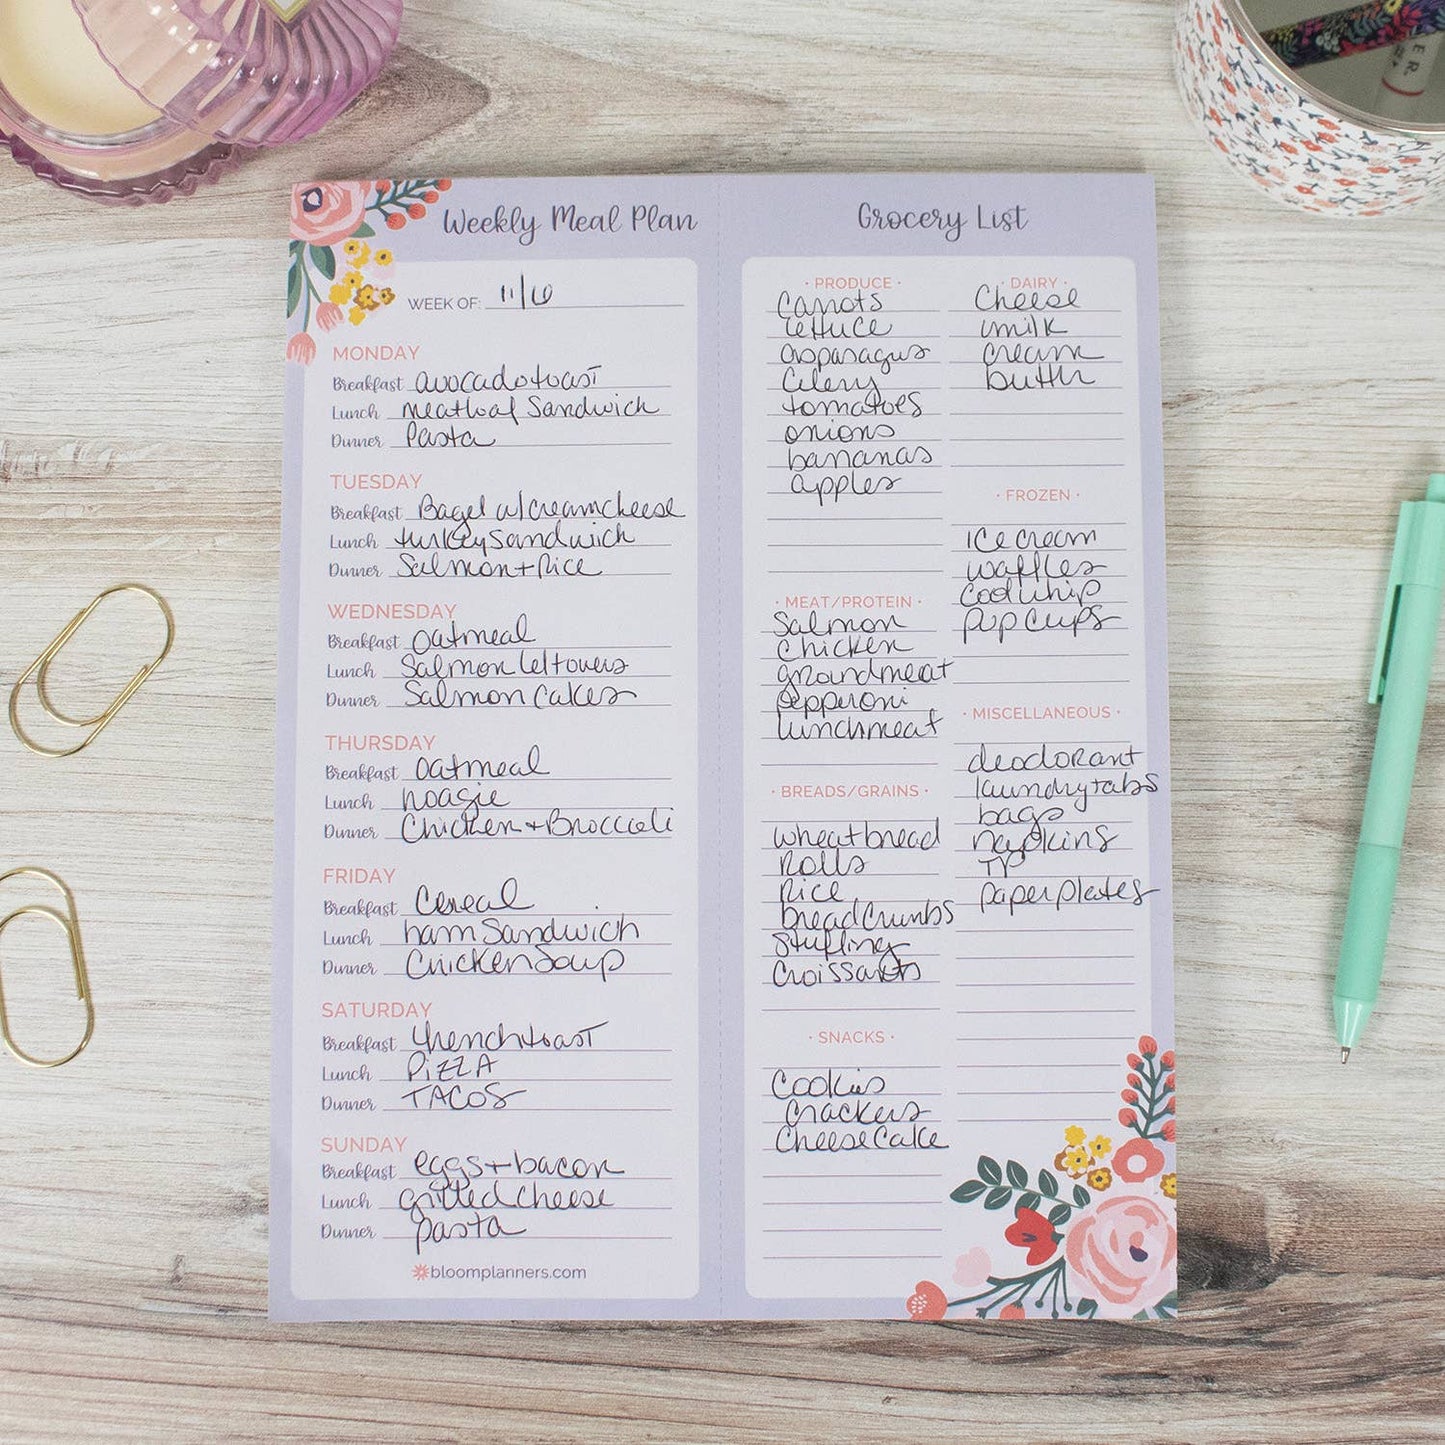 Weekly Meal Plan
WEEK OF: 11/6
MONDAY
Breakfast avocado toast
Lunch meatloaf Sandwich
Dinner Pasta
TUESDAY
Breakfast Bagel w/creamcheese
Lunch turkey Sandwich
Dinner Salmon + Rice
WEDNESDAY
Breakfast oatmeal
Lunch Salmon leftovers
Dinner Salmon Cakes
THURSDAY
Breakfast oatmeal
Lunch hoagie
Dinner Chicken + Broccoli
FRIDAY
Breakfast Cereal
Lunch ham Sandwich
Dinner Chicken Soup
SATURDAY
Breakfast french toast
Lunch PIZZA
Dinner TACOS
SUNDAY
Breakfast eggs + bacon
Lunch grilled cheese
Dinner pasta
bloomplanners.com
Grocery List
· PRODUCE ·
Carrots
lettuce
asparagus
Celery
tomatoes
onions
bananas
apples
· MEAT/PROTEIN ·
Salmon
Chicken
groundmeat
pepperoni
lunchmeat
· BREADS/GRAINS ·
wheat bread
Rolls
Rice
bread Crumbs
Stuffing
Croissants
· SNACKS ·
Cookies
Crackers
Cheese Cake
· DAIRY ·
Cheese
milk
Cream
butter
· FROZEN ·
Ice cream
waffles
Cool Whip
pup cups
· MISCELLANEOUS ·
deodorant
laundry tabs
bags
napkins
TP
paper plates